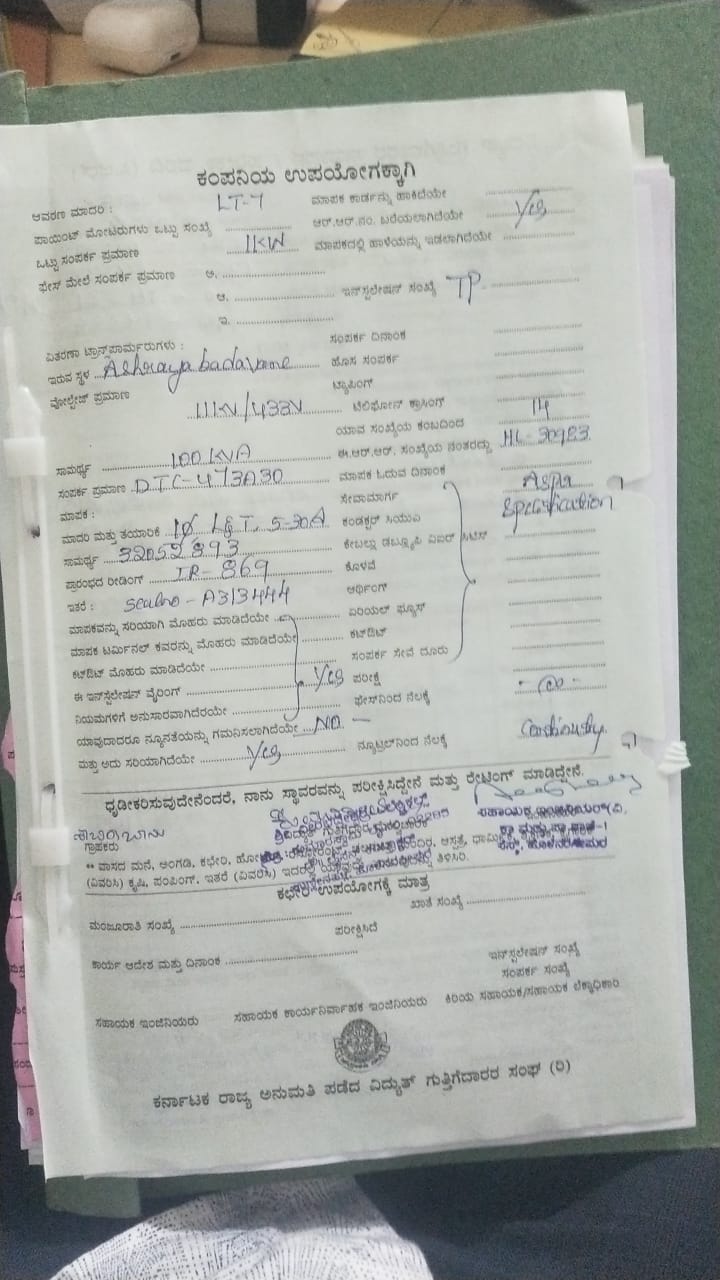 ಕಂಪನಿಯ ಉಪಯೋಗಕ್ಕಾಗಿ
ಆವರಣ ಮಾದರಿ : LT-7 ಮಾಪಕ ಕಾರ್ಡನ್ನು ಹಾಕಿದೆಯೇ
ಪಾಯಿಂಟ್ ಮೋಟರುಗಳು ಒಟ್ಟು ಸಂಖ್ಯೆ ಆರ್.ಆರ್.ನಂ. ಬರೆಯಲಾಗಿದೆಯೇ Yes
ಒಟ್ಟು ಸಂಪರ್ಕ ಪ್ರಮಾಣ 1KW ಮಾಪಕದಲ್ಲಿ ಹಾಳೆಯನ್ನು ಇಡಲಾಗಿದೆಯೇ
ಫೇಸ್ ಮೇಲೆ ಸಂಪರ್ಕ ಪ್ರಮಾಣ ಅ.
ಆ. ಇನ್‌ಸ್ಟಲೇಷನ್ ಸಂಖ್ಯೆ TP
ಇ.
ವಿತರಣಾ ಟ್ರಾನ್ಸ್‌ಫಾರ್ಮರುಗಳು : ಸಂಪರ್ಕ ದಿನಾಂಕ
ಇರುವ ಸ್ಥಳ Ashraya badavane ಹೊಸ ಸಂಪರ್ಕ
ವೋಲ್ಟೇಜ್ ಪ್ರಮಾಣ ಟ್ಯಾಪಿಂಗ್
11KV/433V ಟೆಲಿಫೋನ್ ಕ್ರಾಸಿಂಗ್
ಯಾವ ಸಂಖ್ಯೆಯ ಕಂಬದಿಂದ 14
ಸಾಮರ್ಥ್ಯ 100 KVA ಈ.ಆರ್.ಆರ್. ಸಂಖ್ಯೆಯ ನಂತರದ್ದು HL-30923
ಸಂಪರ್ಕ ಪ್ರಮಾಣ DTC-473A30 ಮಾಪಕ ಓದುವ ದಿನಾಂಕ
ಮಾಪಕ : ಸೇವಾಮಾರ್ಗ As per
ಮಾದರಿ ಮತ್ತು ತಯಾರಿಕೆ 1Ø L&T, 5-30A ಕಂಡಕ್ಟರ್ ಸಿಯುಎ Specification
ಸಾಮರ್ಥ್ಯ 32052893 ಕೇಬಲ್ಲು ಡಬ್ಲ್ಯೂಪಿ
ಪ್ರಾರಂಭದ ರೀಡಿಂಗ್ IR-869 ಕೊಳವೆ
ಇತರೆ : Sealno - A313444 ಅರ್ಥಿಂಗ್
ಮಾಪಕವನ್ನು ಸರಿಯಾಗಿ ಮೊಹರು ಮಾಡಿದೆಯೇ ಏರಿಯಲ್ ಫ್ಯೂಸ್
ಮಾಪಕ ಟರ್ಮಿನಲ್ ಕವರನ್ನು ಮೊಹರು ಮಾಡಿದೆಯೇ ಕಟ್‌ಔಟ್
ಕಟ್‌ಔಟ್ ಮೊಹರು ಮಾಡಿದೆಯೇ ಸಂಪರ್ಕ ಸೇವೆ ದೂರು
ಈ ಇನ್‌ಸ್ಟಲೇಷನ್ ವೈರಿಂಗ್ Yes ಪರೀಕ್ಷೆ
ನಿಯಮಗಳಿಗೆ ಅನುಸಾರವಾಗಿದೆರಯೇ ಫೇಸ್‌ನಿಂದ ನೆಲಕ್ಕೆ
ಯಾವುದಾದರೂ ನ್ಯೂನತೆಯನ್ನು ಗಮನಿಸಲಾಗಿದೆಯೇ NO
ಮತ್ತು ಅದು ಸರಿಯಾಗಿದೆಯೇ Yes ನ್ಯೂಟ್ರಲ್‌ನಿಂದ ನೆಲಕ್ಕೆ Continuity
ಧೃಡೀಕರಿಸುವುದೇನೆಂದರೆ, ನಾನು ಸ್ಥಾವರವನ್ನು ಪರೀಕ್ಷಿಸಿದ್ದೇನೆ ಮತ್ತು ರೇಟಿಂಗ್ ಮಾಡಿದ್ದೇನೆ.
ಗ್ರಾಹಕರು
** ವಾಸದ ಮನೆ, ಅಂಗಡಿ, ಕಛೇರಿ, ಆಸ್ಪತ್ರೆ,
(ವಿವರಿಸಿ) ಕೃಷಿ, ಪಂಪಿಂಗ್, ಇತರೆ (ವಿವರಿಸಿ) ತಿಳಿಸಿರಿ.
ಕಛೇರಿ ಉಪಯೋಗಕ್ಕೆ ಮಾತ್ರ
ಮಂಜೂರಾತಿ ಸಂಖ್ಯೆ ಖಾತೆ ಸಂಖ್ಯೆ
ಪರೀಕ್ಷಿಸಿದೆ
ಕಾರ್ಯ ಆದೇಶ ಮತ್ತು ದಿನಾಂಕ ಇನ್‌ಸ್ಟಲೇಷನ್ ಸಂಖ್ಯೆ
ಸಂಪರ್ಕ ಸಂಖ್ಯೆ
ಸಹಾಯಕ ಇಂಜಿನಿಯರು ಸಹಾಯಕ ಕಾರ್ಯನಿರ್ವಾಹಕ ಇಂಜಿನಿಯರು ಕಿರಿಯ ಸಹಾಯಕ/ಸಹಾಯಕ ಲೆಕ್ಕಾಧಿಕಾರಿ
ಕರ್ನಾಟಕ ರಾಜ್ಯ ಅನುಮತಿ ಪಡೆದ ವಿದ್ಯುತ್ ಗುತ್ತಿಗೆದಾರರ ಸಂಘ (ರಿ)